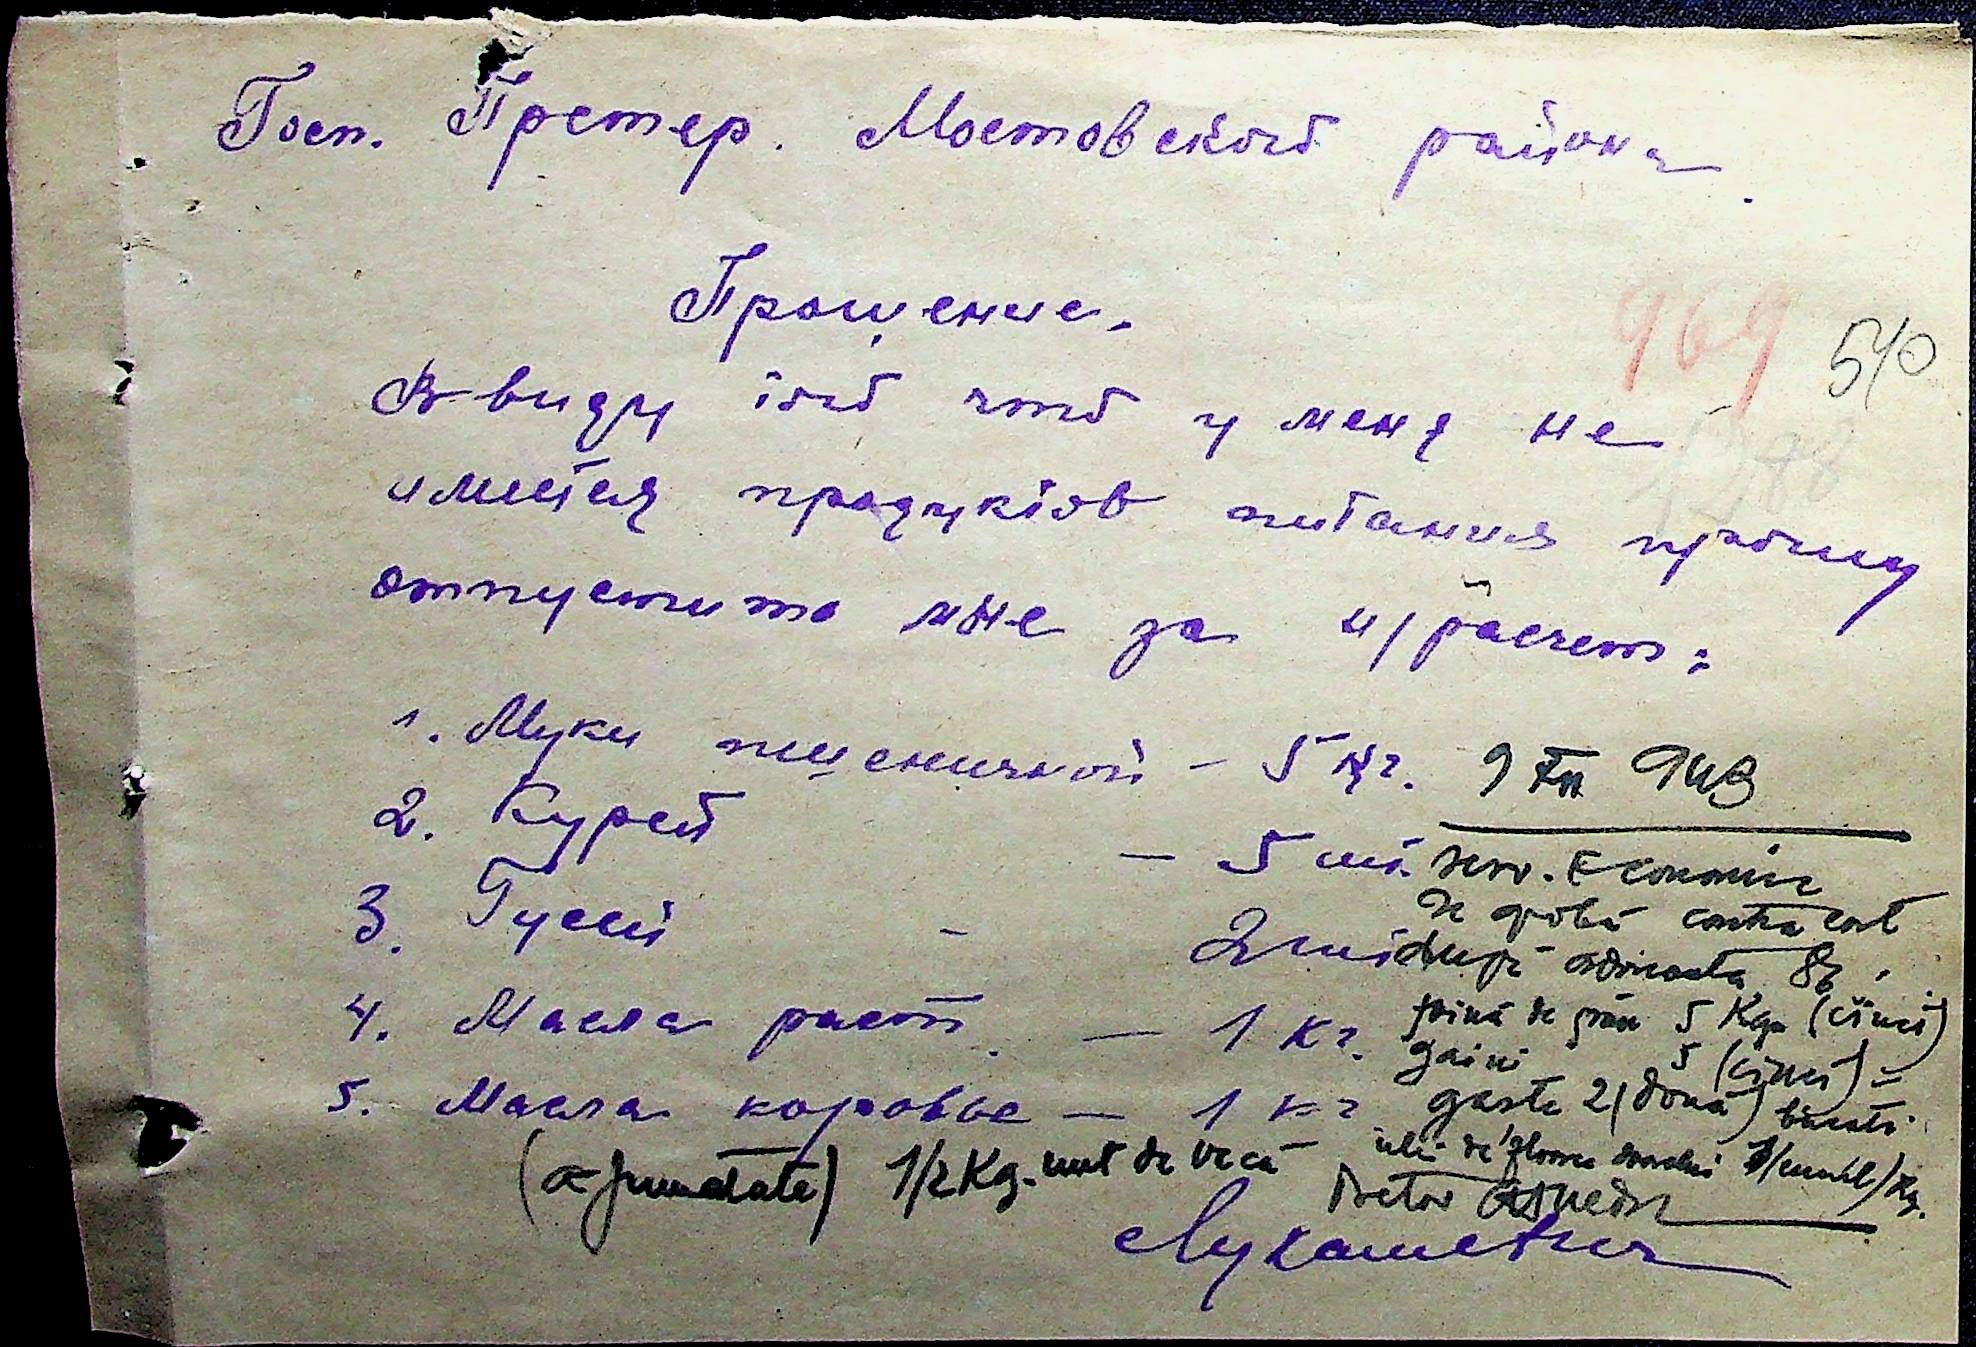 Госп. Претер. Мостовского района.
Прошение.
969
540
В виду того что у меня не
имеется продуктов питания прошу
отпустить мне за н/расчет:
1. Муки пшеничной - 5 кг.
2. Курей — 5 шт.
3. Гусей - 2 шт
4. Масла раст. — 1 кг.
5. Масла коровье — 1 кг
9 XII 943
Serv. Economic
Se aprobă contra cost
după ordonanța
făină de grâu 5 Kgr (cinci)
gaini 5 (cinci) =
gaste 2 (două) bucăti
ulei de floarea soarelui 1/(unul)/Kg.
(o jumatate) 1/2 Kg. unt de vacă
Pretor